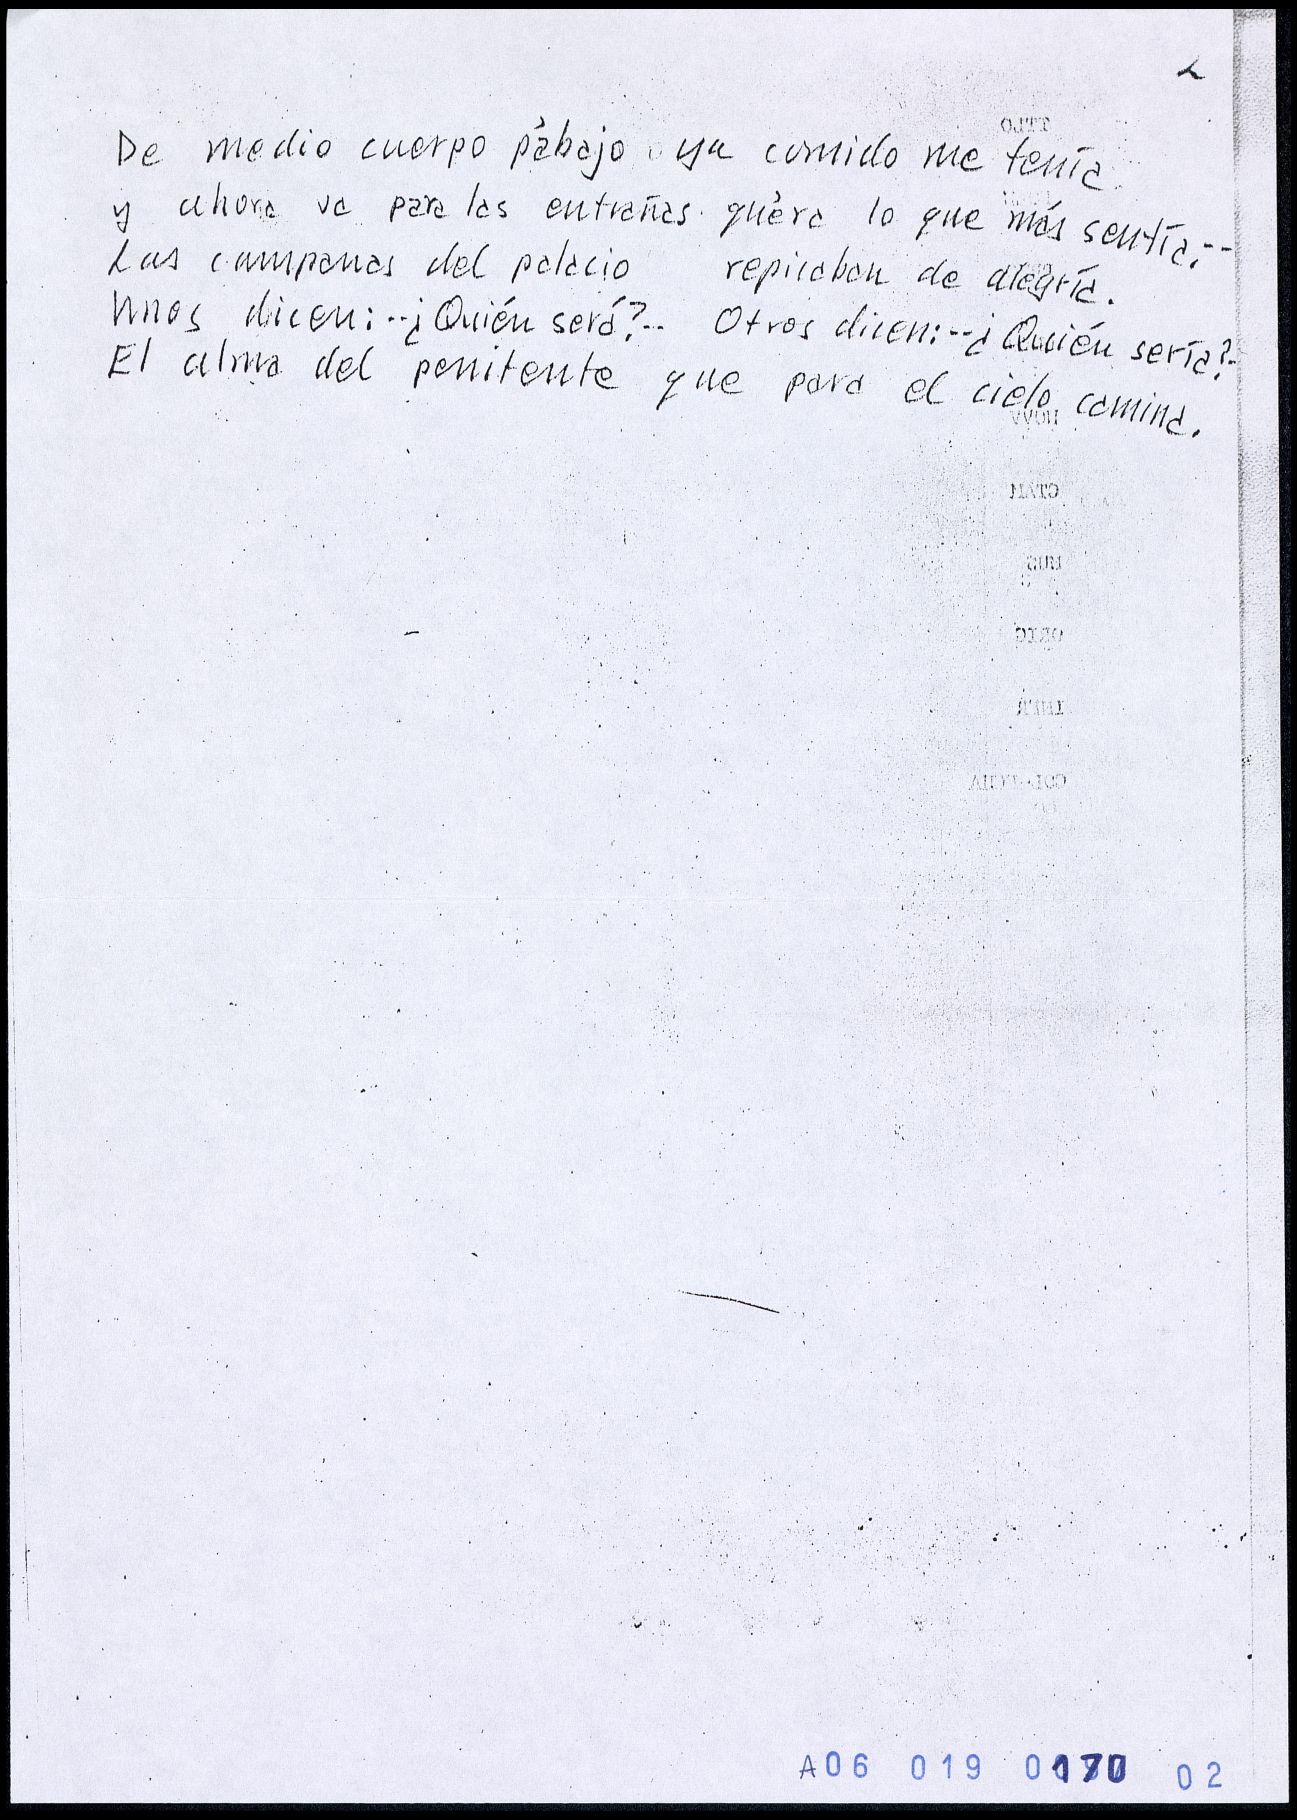 2
De medio cuerpo p'abajo ya comido me tenía
y ahora va para las entrañas qu'era lo que más sentía.--
Las campanas del palacio repicaban de alegría.
Unos dicen:--¿Quién será?-- Otros dicen:--¿Quién sería?--
El alma del penitente que para el cielo camina.
A06 019 0170 02